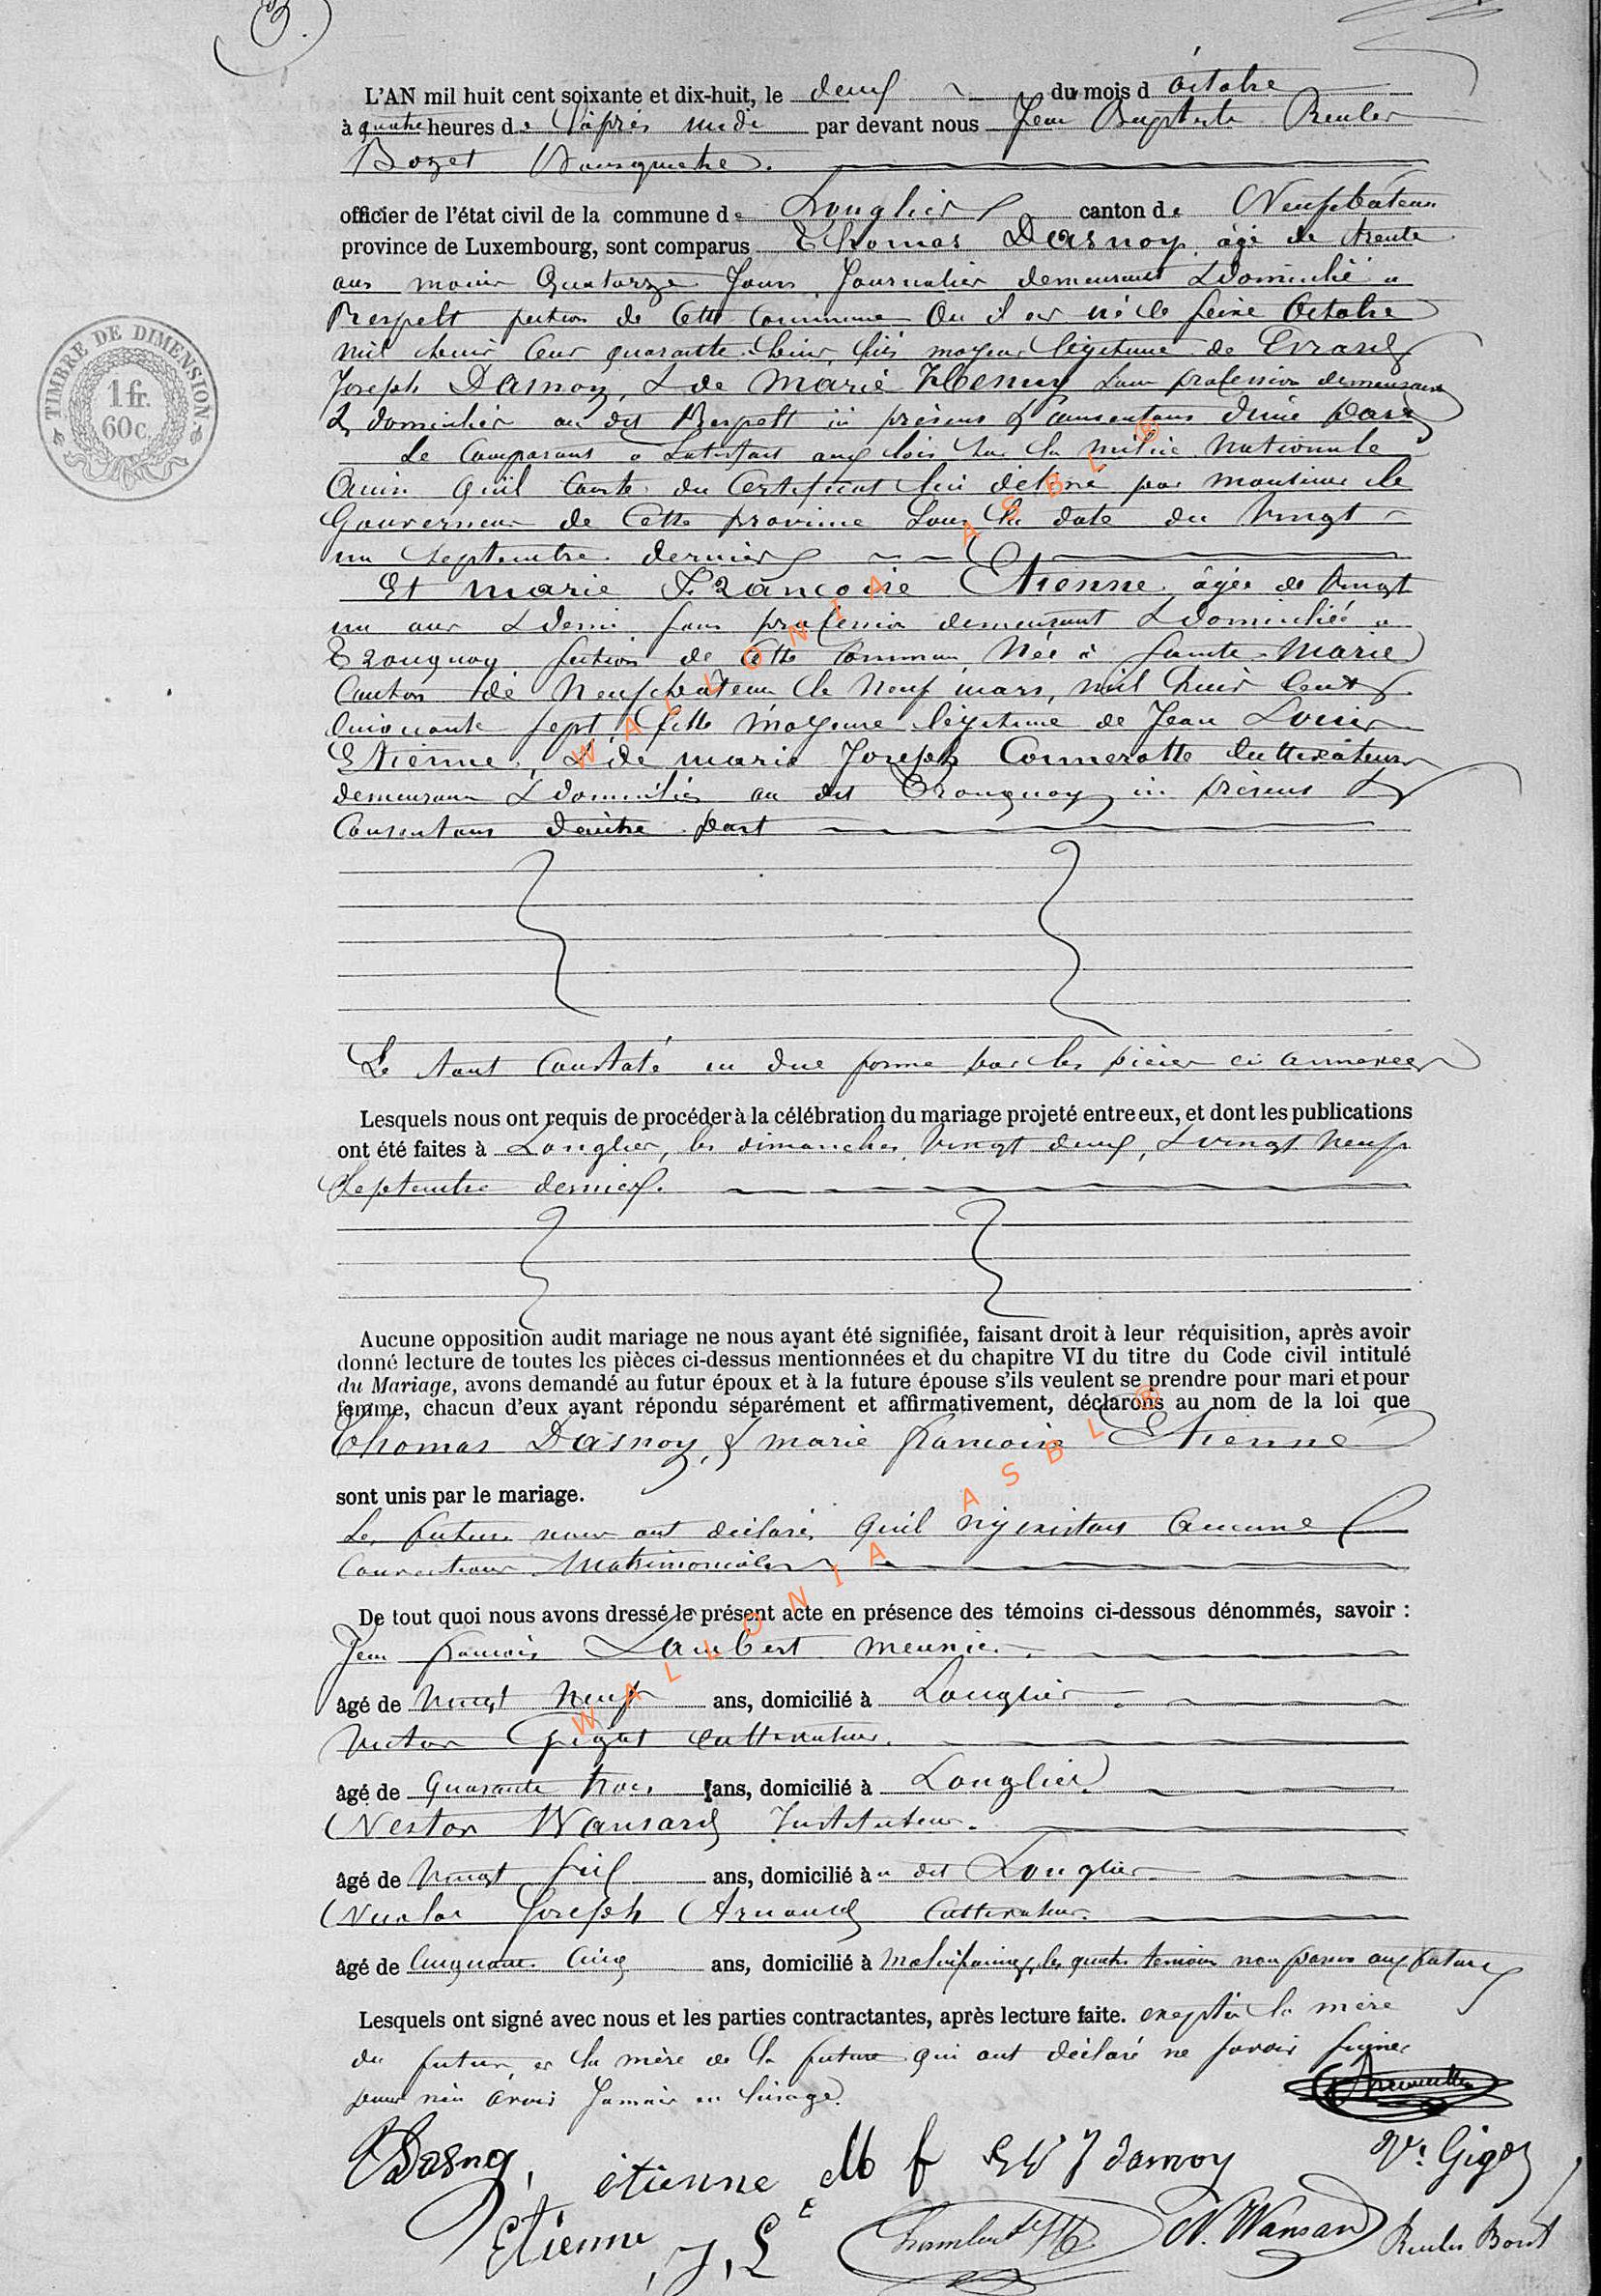 3.
L'AN mil huit cent soixante et dix-huit, le deux du mois d octobre
à quatre heures de l'après midi par devant nous Jean Baptiste Reuler
Bozet Bourgmestre.
officier de l'état civil de la commune de Longlier canton de Neufchâteau
province de Luxembourg, sont comparus Thomas Dasnoy âgé de trente
ans moins Quatorze Jours, Journalier demeurant & domicilié à
Respelt section de cette Commune Où il est né le seize Octobre
mil huit Cent quarante huit, fils majeur légitime de Evrard
Joseph Dasnoy, & de Marie Henuy sans profession demeurans
& domiciliés au dit Respelt ici présens & consentans d'une part
Le Comparant a satisfait aux lois sur la milice Nationale
Ainsi qu'il Conste du Certificat lui délivré par Monsieur le
Gouverneur de Cette province sous la date du Vingt
un Septembre dernier
Et Marie Françoise Etienne âgée de Vingt
un ans & demi sans profession demeurant & domiciliée à
Tronquoy section de Cette Commune, Née à Sainte-Marie
Canton de Neufchâteau le Neuf mars, mil huit Cent
Cinquante sept, fille majeure légitime de Jean Louis
Etienne, & de Marie Joseph Connerotte Cultivateurs
demeurans & domiciliés au dit Tronquoy ici présens &
Consentans d'autre part
Le tout Constaté en due forme par les pièces ci annexées
Lesquels nous ont requis de procéder à la célébration du mariage projeté entre eux, et dont les publications
ont été faites à Longlier, les dimanches Vingt deux, & vingt Neuf
Septembre dernier.
Aucune opposition audit mariage ne nous ayant été signifiée, faisant droit à leur réquisition, après avoir
donné lecture de toutes les pièces ci-dessus mentionnées et du chapitre VI du titre du Code civil intitulé
du Mariage, avons demandé au futur époux et à la future épouse s'ils veulent se prendre pour mari et pour
femme, chacun d'eux ayant répondu séparément et affirmativement, déclarons au nom de la loi que
Thomas Dasnoy, & marie françoise Etienne
sont unis par le mariage.
Les futurs nous ont déclaré qu'il n'y existait Aucune
Convention Matrimoniales
De tout quoi nous avons dressé le présent acte en présence des témoins ci-dessous dénommés, savoir :
Jean françois Lambert meunier
âgé de Vingt Neuf ans, domicilié à Longlier
Victor Gigot Cultivateur.
âgé de Quarante trois ans, domicilié à Longlier
Nestor Wansard Instituteur.
âgé de Vingt six ans, domicilié à u dit Longlier
Nicolas Joseph Arnould Cultivateur.
âgé de Cinquante Cinq ans, domicilié à Molinfaing, les quatre témoins non parens aux futurs
Lesquels ont signé avec nous et les parties contractantes, après lecture faite. exceptées la mère
du futur, et la mère de la future qui ont déclaré ne savoir signer
pour n'en avoir Jamais eu l'usage.
T Dasnoy, étienne M f E J dasnoy Vr. Gigot
Etienne, J, L N. Wansard Reuler Bozet
TIMBRE DE DIMENSION
1 fr.
60 c.
WALLONIA ASBL ®
WALLONIA ASBL ®